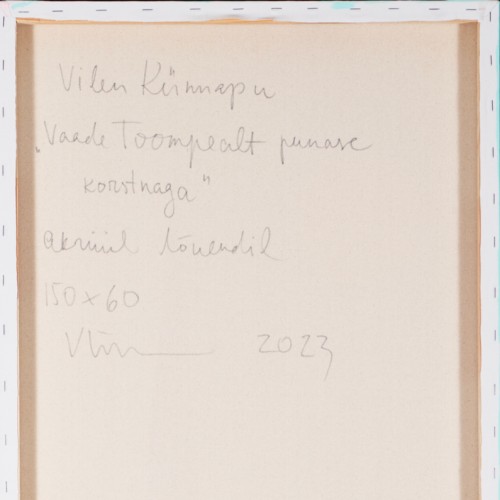 Vilen Künnapu
„Vaade Toompealt punase
korstnaga"
akrüül lõuendil
150 x 60
2023